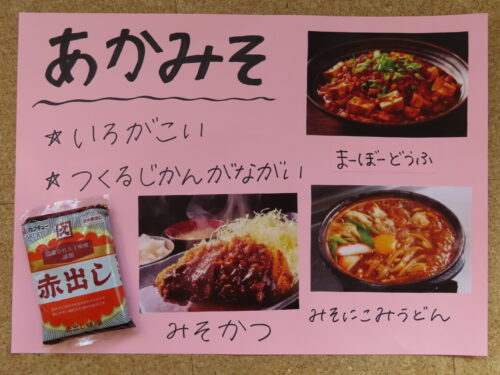 あかみそ
☆いろがこい
☆つくるじかんがながい
まーぼーどうふ
みそかつ
みそにこみうどん
カクキュー
赤出し